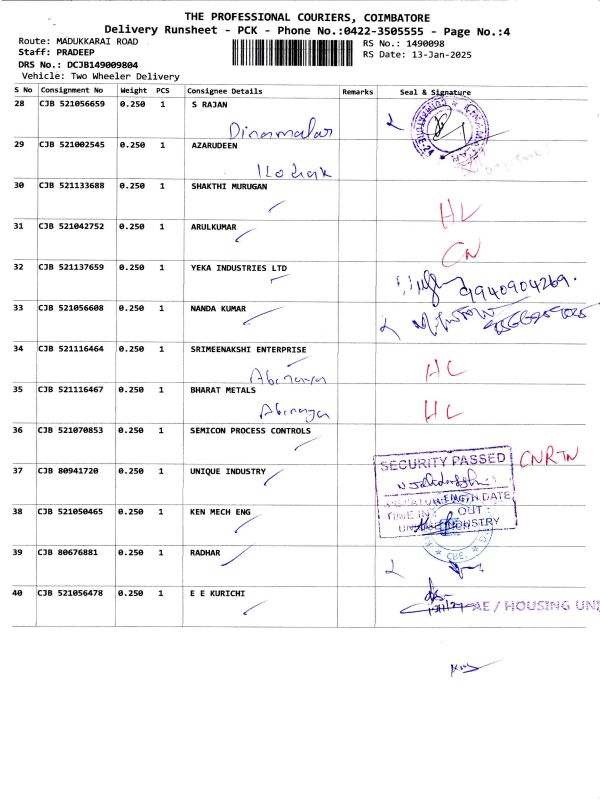 THE PROFESSIONAL COURIERS, COIMBATORE
Delivery Runsheet - PCK - Phone No.:0422-3505555 - Page No.:4
Route: MADUKKARAI ROAD
RS No.: 1490098
Staff: PRADEEP
RS Date: 13-Jan-2025
DRS No.: DCJB149009804
Vehicle: Two Wheeler Delivery
S No Consignment No Weight PCS Consignee Details Remarks Seal & Signature
28 CJB 521056659 0.250 1 S RAJAN
Dinamalar
29 CJB 521002545 0.250 1 AZARUDEEN
Kodak
30 CJB 521133688 0.250 1 SHAKTHI MURUGAN
HL
31 CJB 521042752 0.250 1 ARULKUMAR
CN
32 CJB 521137659 0.250 1 YEKA INDUSTRIES LTD
9940904269.
33 CJB 521056608 0.250 1 NANDA KUMAR
34 CJB 521116464 0.250 1 SRIMEENAKSHI ENTERPRISE
Abiranya HC
35 CJB 521116467 0.250 1 BHARAT METALS
Abiranya HC
36 CJB 521070853 0.250 1 SEMICON PROCESS CONTROLS
SECURITY PASSED CNRTN
37 CJB 80941720 0.250 1 UNIQUE INDUSTRY
SIGNATURE WITH DATE
TIME IN: OUT:
38 CJB 521050465 0.250 1 KEN MECH ENG
UNIQUE INDUSTRY
CBE.
39 CJB 80676881 0.250 1 RADHAR
40 CJB 521056478 0.250 1 E E KURICHI
AE / HOUSING UNI